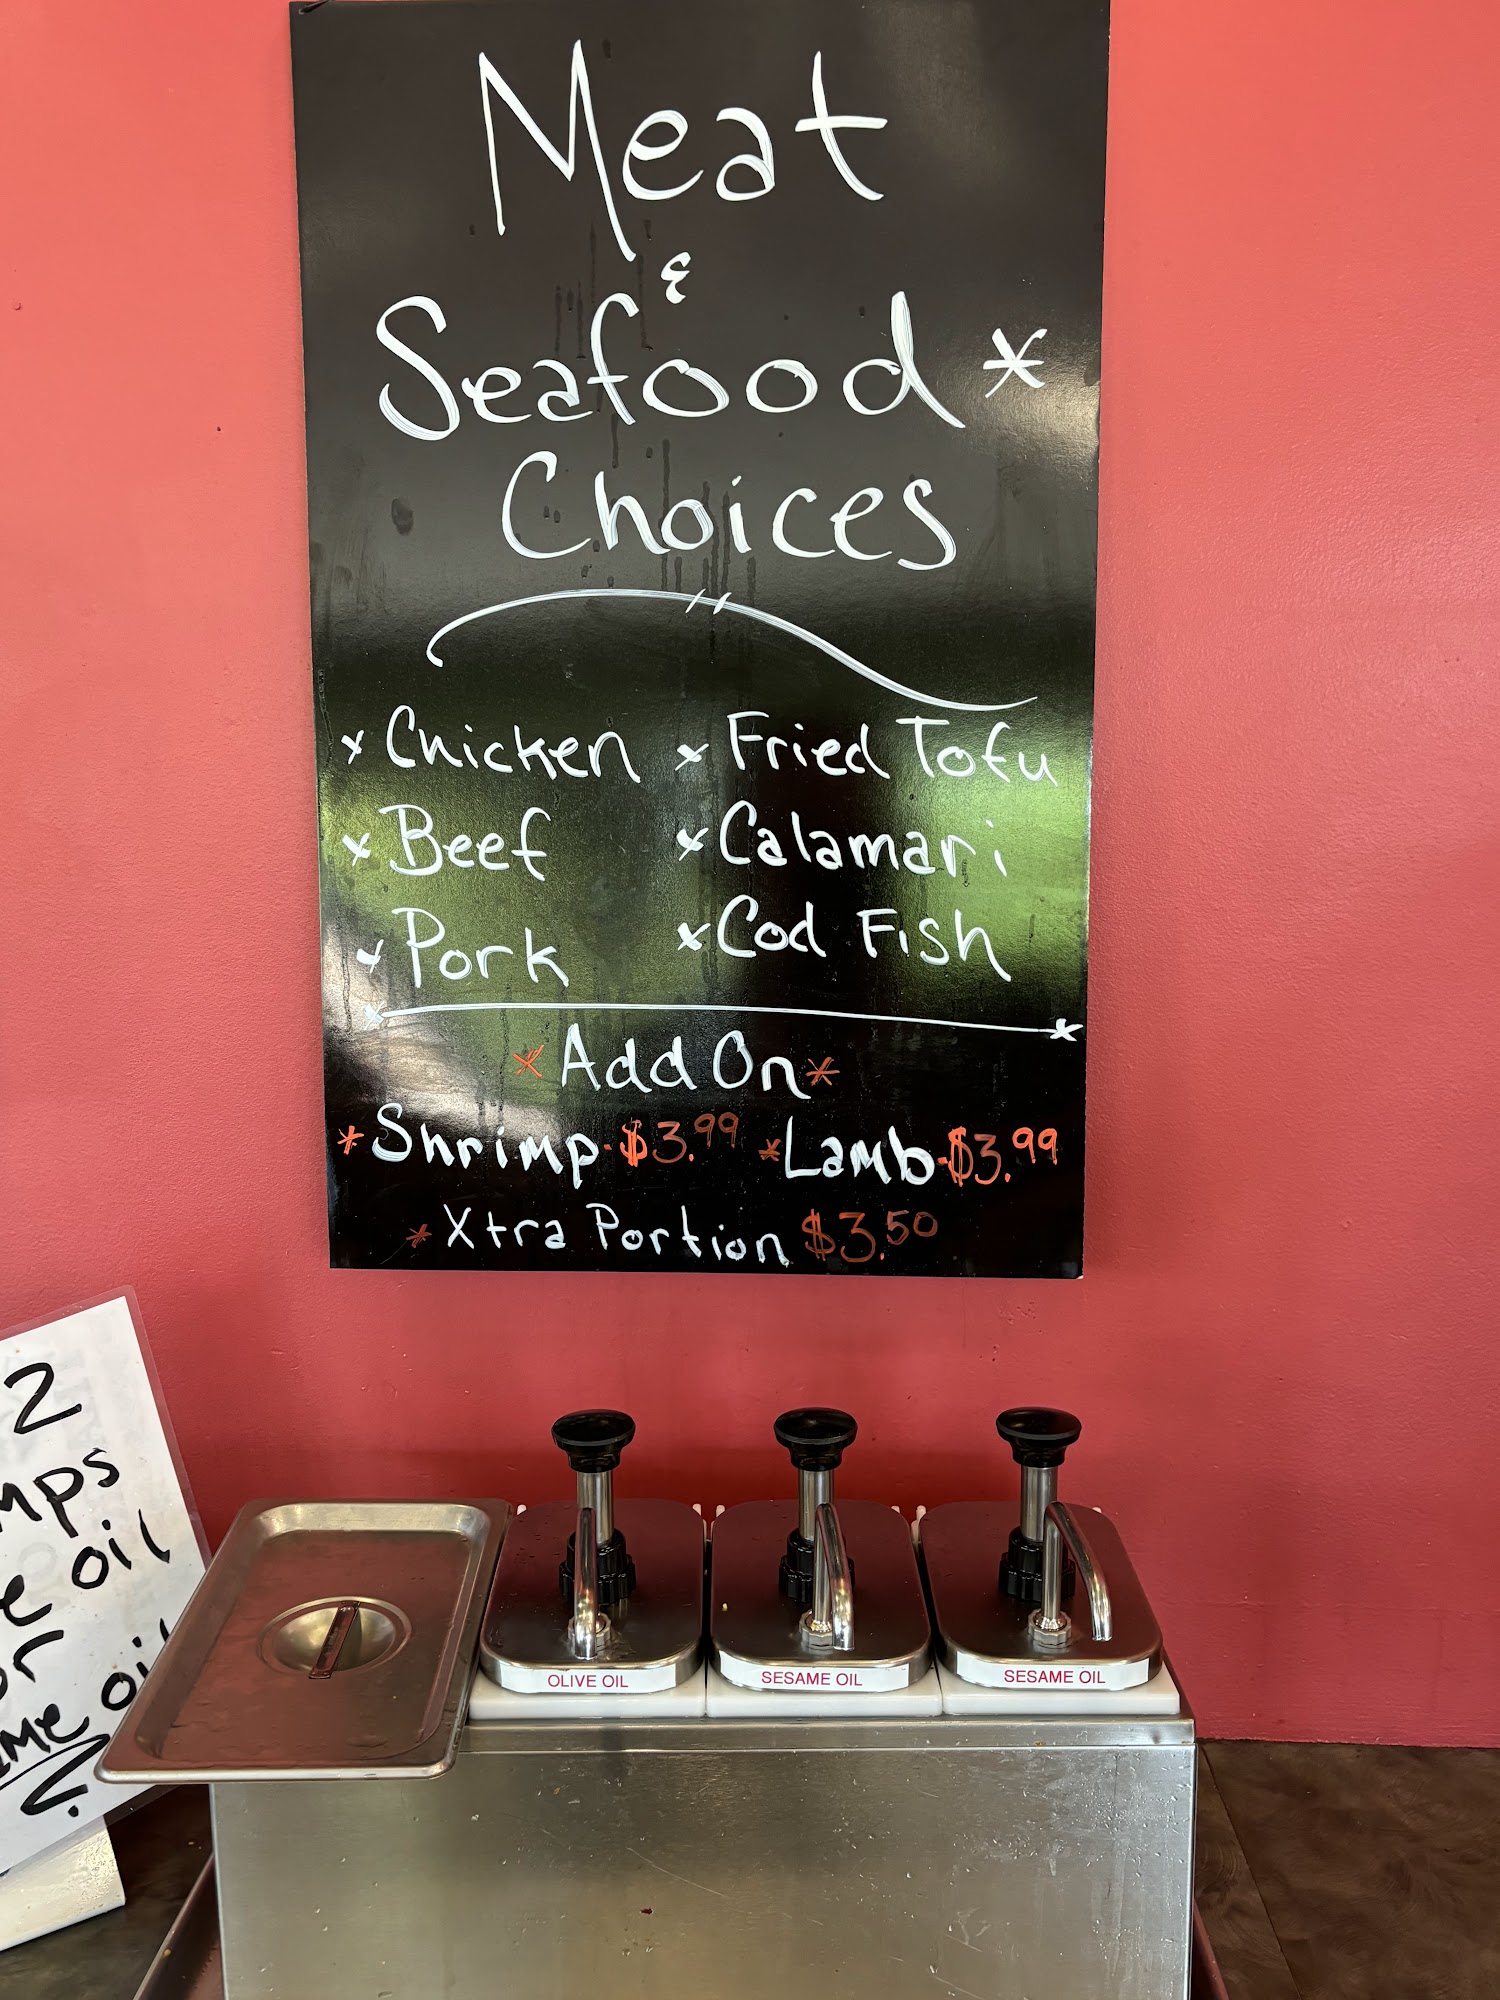 Meat
&
Seafood *
Choices
x Chicken x Fried Tofu
x Beef x Calamari
x Pork x Cod Fish
* Add On *
* Shrimp - $3.99 * Lamb - $3.99
* Xtra Portion $3.50
2
oil
oil
OLIVE OIL
SESAME OIL
SESAME OIL